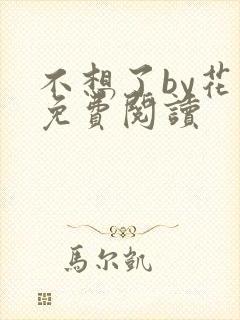 不想了by花
免費閱讀
馬尔凱